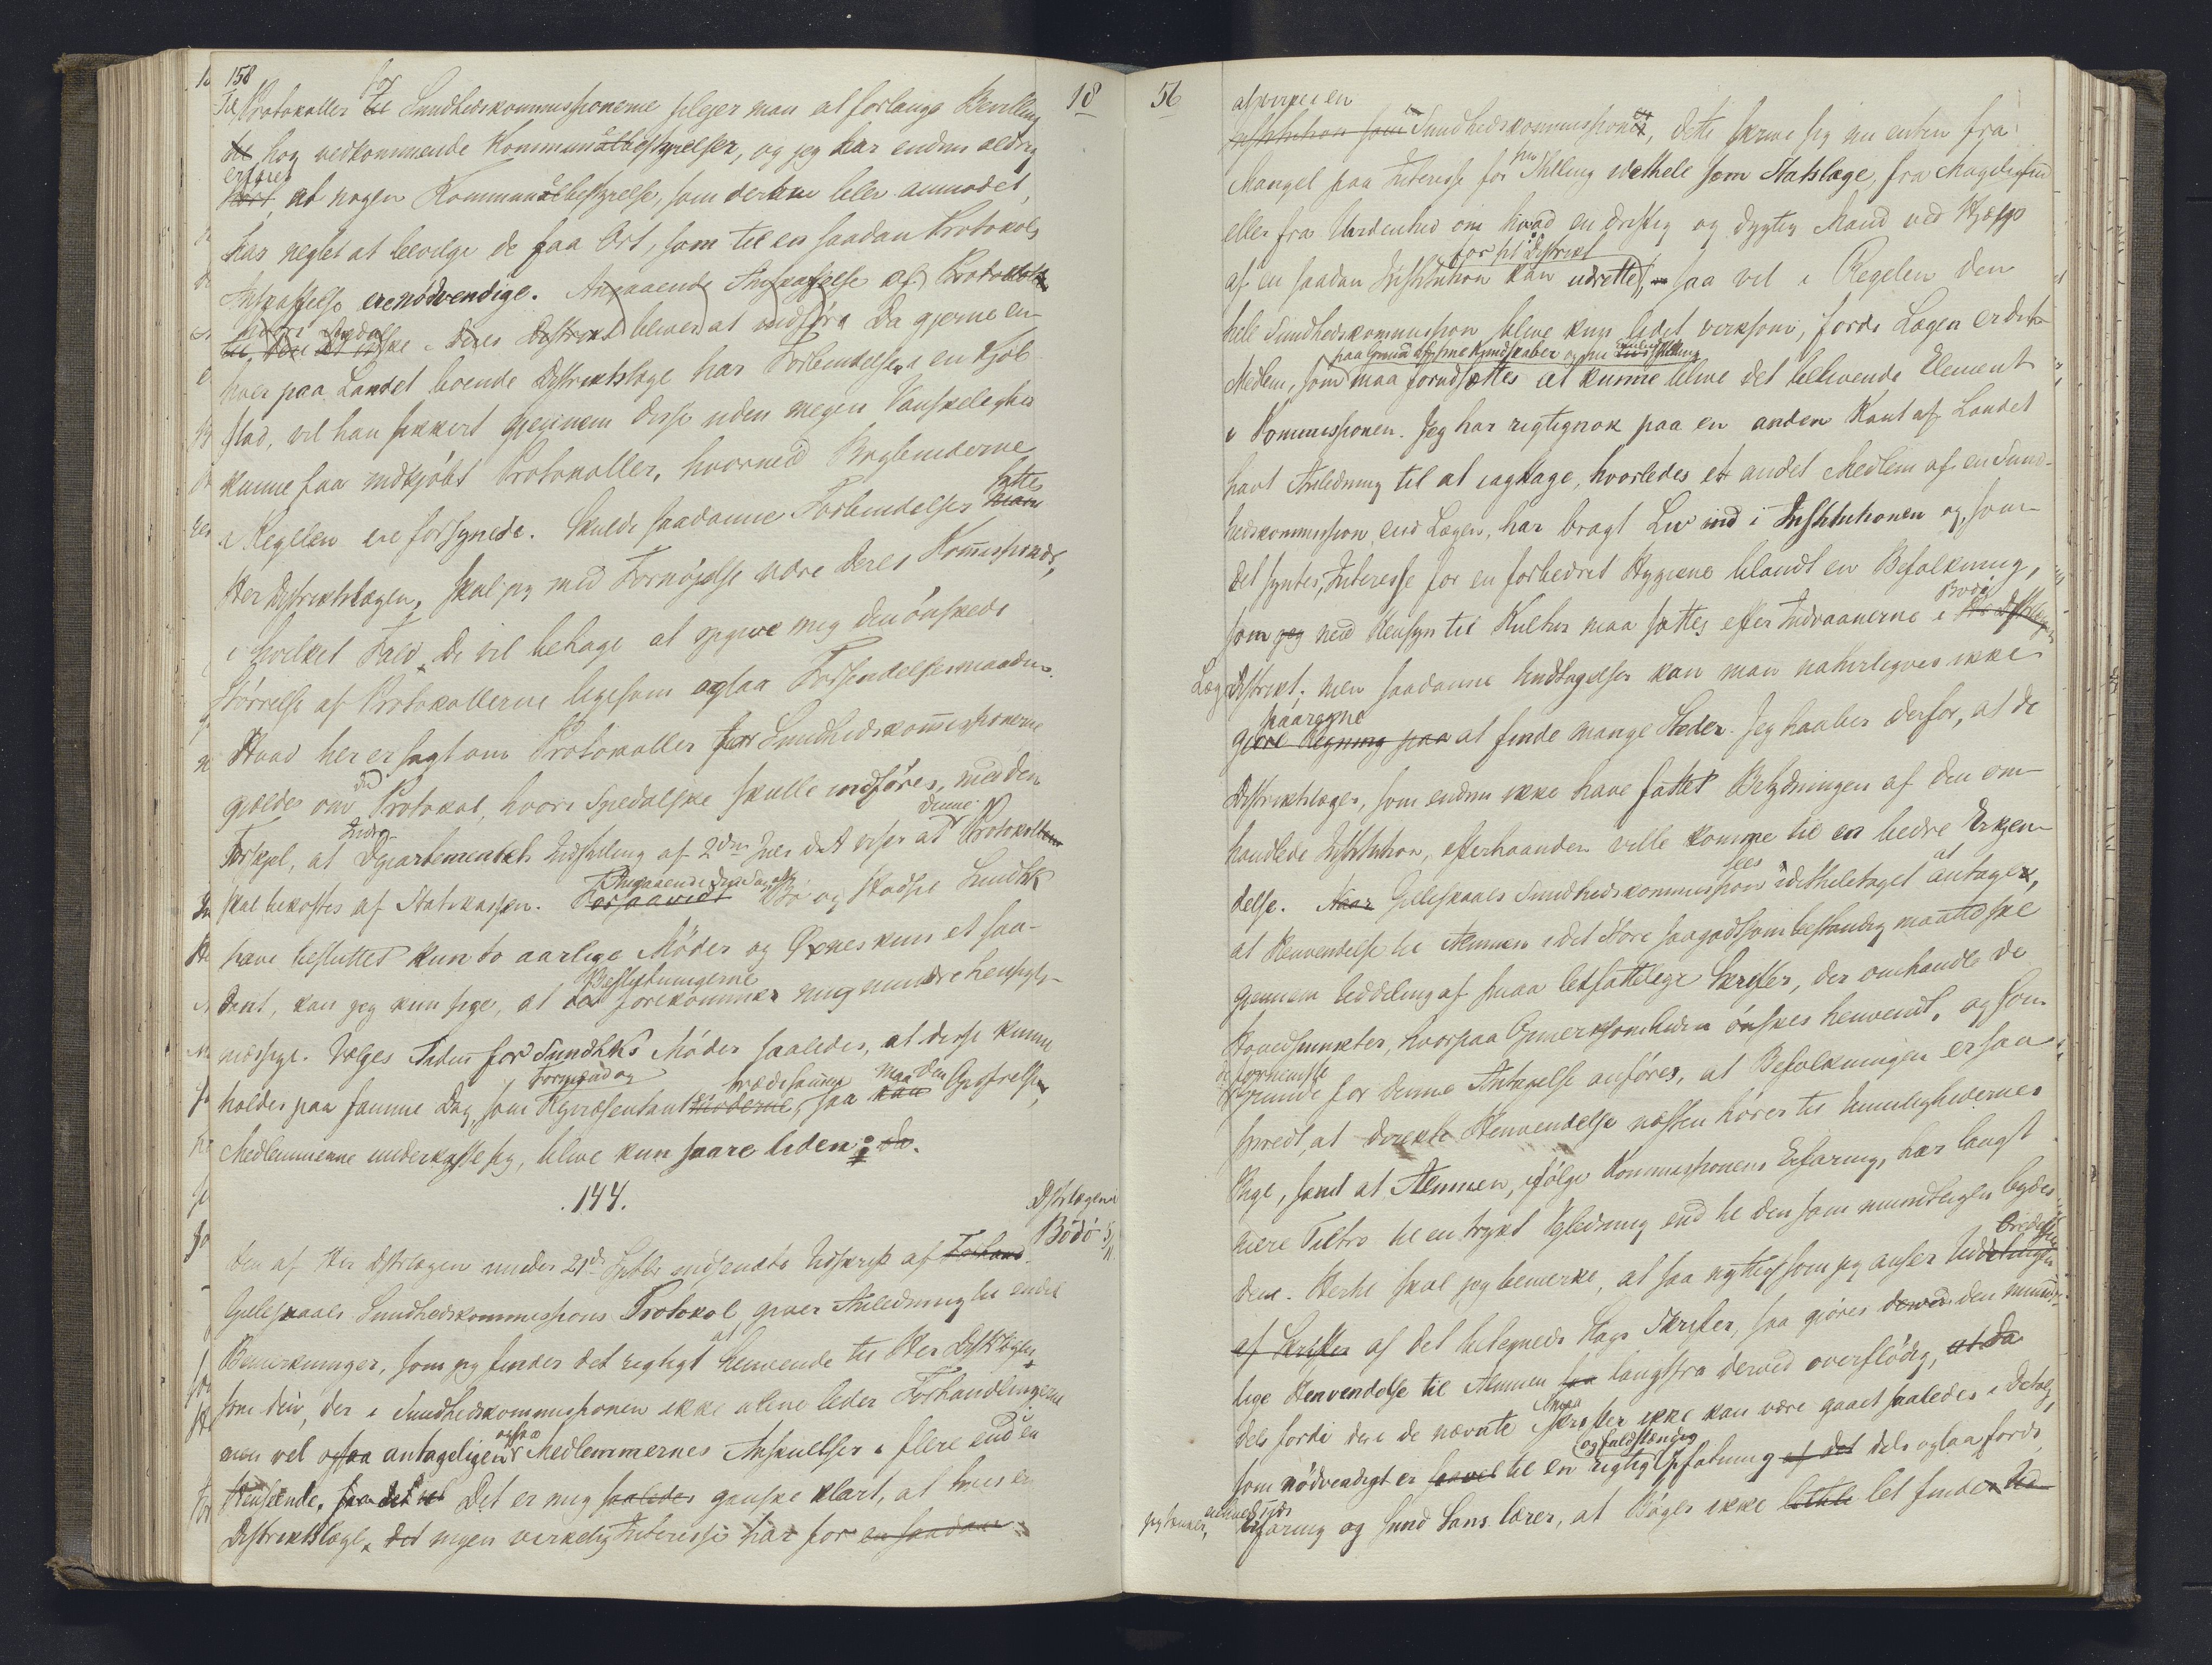 158
for
Til Protokoller til Sundhedskommissionerne plejer man at forlange Bevilling
til hos vedkommende Kommunalbestyrelser, og jeg har endnu aldrig
erfaret
hørt at nogen Kommunalbestyrelse, som derom blev anmodet,
har negtet at bevilge de faa Ort, som til en saadan Protokols
Anskaffelse ere nødvendige. Angaaende Anskaffelse af Protokoller
spedalske i Deres Distrikt blive at indføre Da gjerne en-
hver paa Landet boende Distriktslæge har Forbindelser i en Kjøb-
stad, vil han sikkert gjennem disse uden megen Vanskelighed
kunne faa indkjøbt Protokoller, hvormed Bogbinderne
i Regelen ere forsynede. Skulde saadanne Forbindelser
Her Distriktslægen, skal jeg med Fornøjelse være Deres Kommissionær,
i hvilket Fald De vil behage at opgive mig den ønskede
Størrelse af Protokollerne ligesom ogsaa Forsendelsesmaaden.
Hvad her er sagt om Protokoller for Sundhedskommissionerne
gjælder om den Protokol, hvori Spedalske skulle indføres, med den
Forskjel, at Indre Departementets Indstilling af 2den Juli d.A. viser at denne Protokol
skal bekostes af Statskassen. Angaaende
Forsaavidt Bø og Hadsel Sundhk
have besluttet kun to aarlige Møder og Øxnes kun et saa-
dant, kan jeg kun sige, at Beslutningerne forekommer mig mindre hensigts-
mæssige. Vælges Tiden for Sundhk's Møder saaledes, at disse kunne
holdes paa samme Dag, som Formænd og Repræsentant træde sammen, saa maa den Opofrelse,
Medlemmerne underkaste sig, blive kun saare liden.
144.
Dstrlægen i
Bodø 5/11
Den af Her Dstrlægen under 21de Septbr indsendte Udskrift af Forhand
Gilleskaals Sundhedskommissions Protokol giver Anledning til endel
Bemærkninger, som jeg finder det rigtigt at henvende til Her Distrlægen
som den, der i Sundhedskommissionen ikke alene leder Forhandlingerne
men vel ogsaa antageligen Medlemmernes Anskuelser i flere end en
Henseende. Det er mig saaledes ganske klart, at hvis en
Distriktslæge ingen virkelig Interesse har for en saadan
18
56
at virke i en
Institution som Sundhedskommissionen, dette skrive sig nu enten fra
Mangel paa Interesse for sin Stilling idethele som Statslæge, fra Magelighed
eller fra Uvidenhed om hvad en driftig og dygtig Mand ved Hjælp
for sit Distrikt
af en saadan Institution kan udrette, saa vil i Regelen den
hele Sundhedskommission blive kun lidet virksom, fordi Lægen er det
paa Grund af sine Kundskaber og sin Stilling
Medlem, som maa forudsættes at kunne blive det belivende Element
i Kommissionen. Jeg har rigtignok paa en anden Kant af Landet
havt Anledning til at iagttage, hvorledes et andet Medlem af en Sund-
hedskommission, end Lægen, har bragt Liv ind i Institutionen og, som
det syntes, Interesse for en forbedret Hygiene blandt en Befolkning,
som jeg med Hensyn til Kultur maa sættes efter Indvaanerne i Bodø
Lægedistrikt; men saadanne Undtagelser kan man naturligvis ikke
paaregne
gjøre Regning paa at finde mange Steder. Jeg haaber derfor, at de
Distriktslæger, som endnu ikke have fattet Betydningen af den om-
handlede Institution, efterhaanden ville komme til en bedre Erkjen-
delse. Naar Gilleskaals Sundhedskommission sees idetheletaget at antage,
at Henvendelse til Almuen i det Støre saagodtsom bestandig maatte ske
gjennem Uddeling af smaa letfattelige Skrifter, der omhandle de
Hovedpunkter, hvorpaa Opmerksomheden ønskes henvendt, og som
fornemste
Grunde for denne Antagelse anføres, at Befolkningen er saa
spredt, at direkte Henvendelse næsten hører til Umulighedernes
Rige, samt at Almuen, ifølge Kommissionens Erfaring, har langt
mere Tiltro til en trykt Vejledning end til den som mundtligen bydes
den. Hertil skal jeg bemerke, at saa nyttig som jeg anser Udbredelsen
af Skrifter af det betegnede Slags Skrifter, saa gjøres derved den mundt-
lige Henvendelse til Almuen langtfra derved overflødig, at da
dels fordi der i de nævnte smaa Skrifter ikke kan være gaaet saaledes i Detalj,
og fuldstændig
som nødvendigt er til en rigtig Opfatning af det dels ogsaa fordi
Erfaring og sund Sans lærer, at Bøger ikke let finde